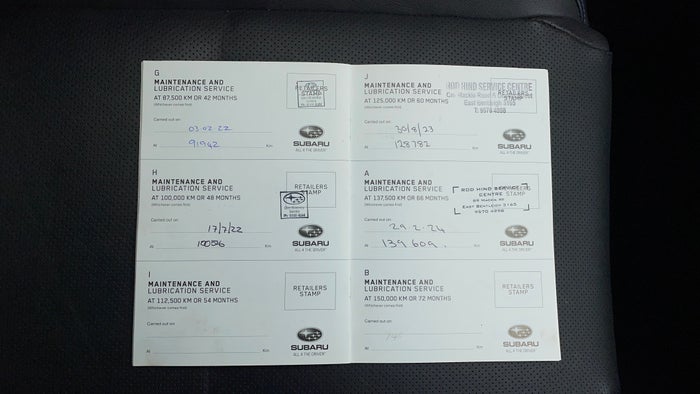 G
MAINTENANCE AND
LUBRICATION SERVICE
AT 87,500 KM OR 42 MONTHS
(Whichever comes first)
RETAILERS
STAMP
Carried out on
03.02.22
At 91942 Km
SUBARU
ALL 4 THE DRIVER
H
MAINTENANCE AND
LUBRICATION SERVICE
AT 100,000 KM OR 48 MONTHS
(Whichever comes first)
RETAILERS
STAMP
Carried out on
17/7/22
At Km
SUBARU
ALL 4 THE DRIVER
I
MAINTENANCE AND
LUBRICATION SERVICE
AT 112,500 KM OR 54 MONTHS
(Whichever comes first)
RETAILERS
STAMP
Carried out on
At Km
SUBARU
ALL 4 THE DRIVER
J
MAINTENANCE AND
LUBRICATION SERVICE
AT 125,000 KM OR 60 MONTHS
(Whichever comes first)
RETAILERS
STAMP
ROD HIND SERVICE CENTRE
East Bentleigh 3165
T: 9570 4098
Carried out on
30/8/23
At 128782 Km
SUBARU
ALL 4 THE DRIVER
A
MAINTENANCE AND
LUBRICATION SERVICE
AT 137,500 KM OR 66 MONTHS
(Whichever comes first)
RETAILERS
STAMP
ROD HIND SERVICE
CENTRE
EAST BENTLEIGH 3165
9570 4098
Carried out on
29.2.24
At 139609. Km
SUBARU
ALL 4 THE DRIVER
B
MAINTENANCE AND
LUBRICATION SERVICE
AT 150,000 KM OR 72 MONTHS
(Whichever comes first)
RETAILERS
STAMP
Carried out on
At Km
SUBARU
ALL 4 THE DRIVER